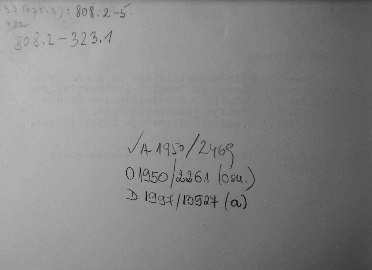 37(075.3):808.2-5
808.2-323.1
√A 1950/2469
O 1950/2261 (osn.)
D 1997/10527 (a)